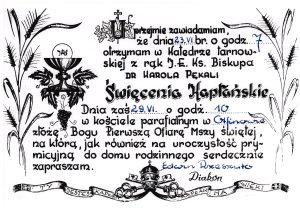 Uprzejmie zawiadamiam,
że dnia 23.VI br. o godz. 7
otrzymam w Katedrze tarnow-
skiej z rąk J.E. Ks. Biskupa
DR KAROLA PĘKALI
Święcenia Kapłańskie.
Dnia zaś 29.VI. o godz. 10
w kościele parafialnym w
złożę Bogu Pierwszą Ofiarę Mszy świętej,
na którą, jak również na uroczystość pry-
micyjną do domu rodzinnego serdecznie
zapraszam.
Edwin
Diakon